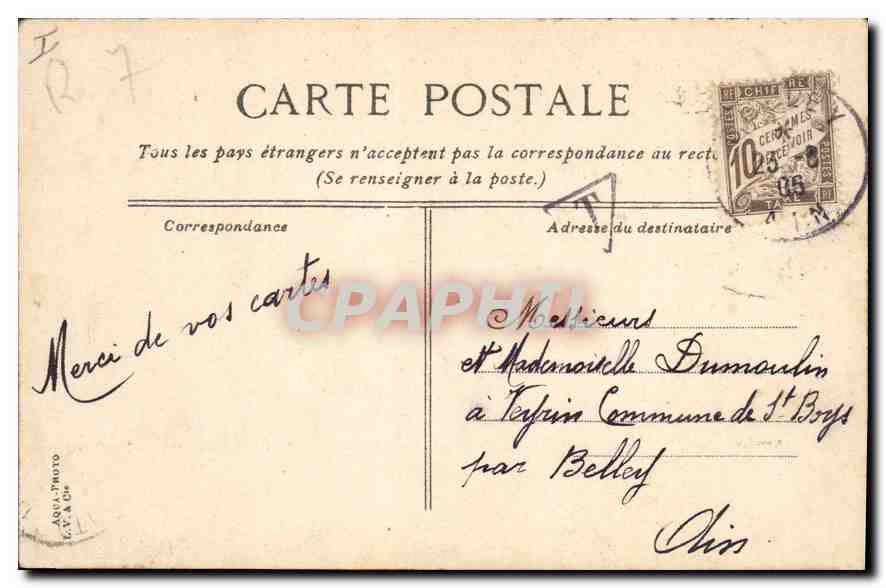 I
R 7
CARTE POSTALE
Tous les pays étrangers n'acceptent pas la correspondance au recto
(Se renseigner à la poste.)
RE CHIFFRE
POSTES
10
CENTIMES
PERCEVOIR
POSTES
TAXE
25 -8
05
AIN
T
Correspondance
Adresse du destinataire
Merci de vos cartes
CPAPHIL
Messieurs
et Mademoiselle Dumoulin
à Veyrin Commune de St Boys
par Belley
Ain
AQUA-PHOTO
L.V. & Cie